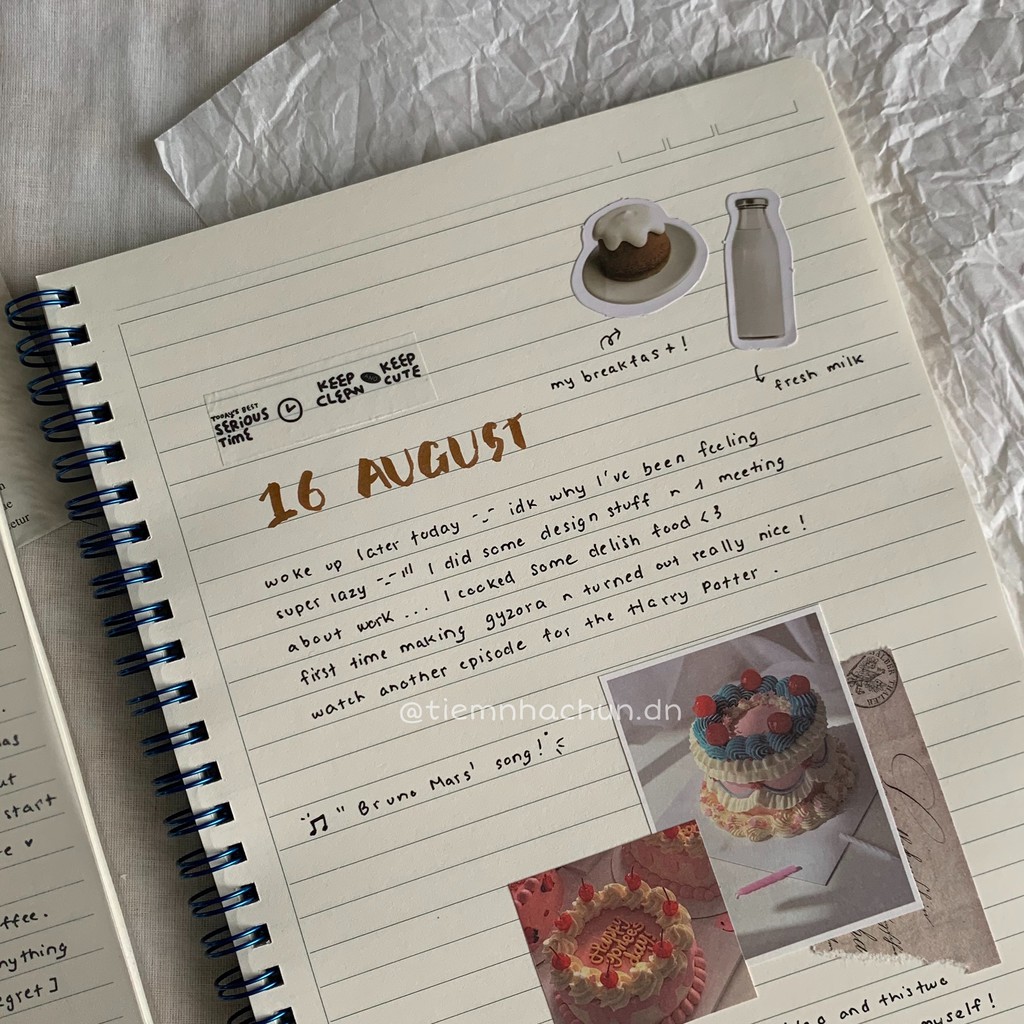 my breakfast!
fresh milk
TODAY'S BEST
SERIOUS
TIME
KEEP
CLEAN
KEEP
CUTE
16 AUGUST
woke up later today -_- idk why I've been feeling
super lazy -_-"' I did some design stuff n 1 meeting
about work... I cooked some delish food <3
first time making gyzora n turned out really nice!
watch another episode for the Harry Potter.
@tiemnhachun.dn
" Bruno Mars' song!
Happy
and this two
myself!
etur
start
ffee.
nything
egret]